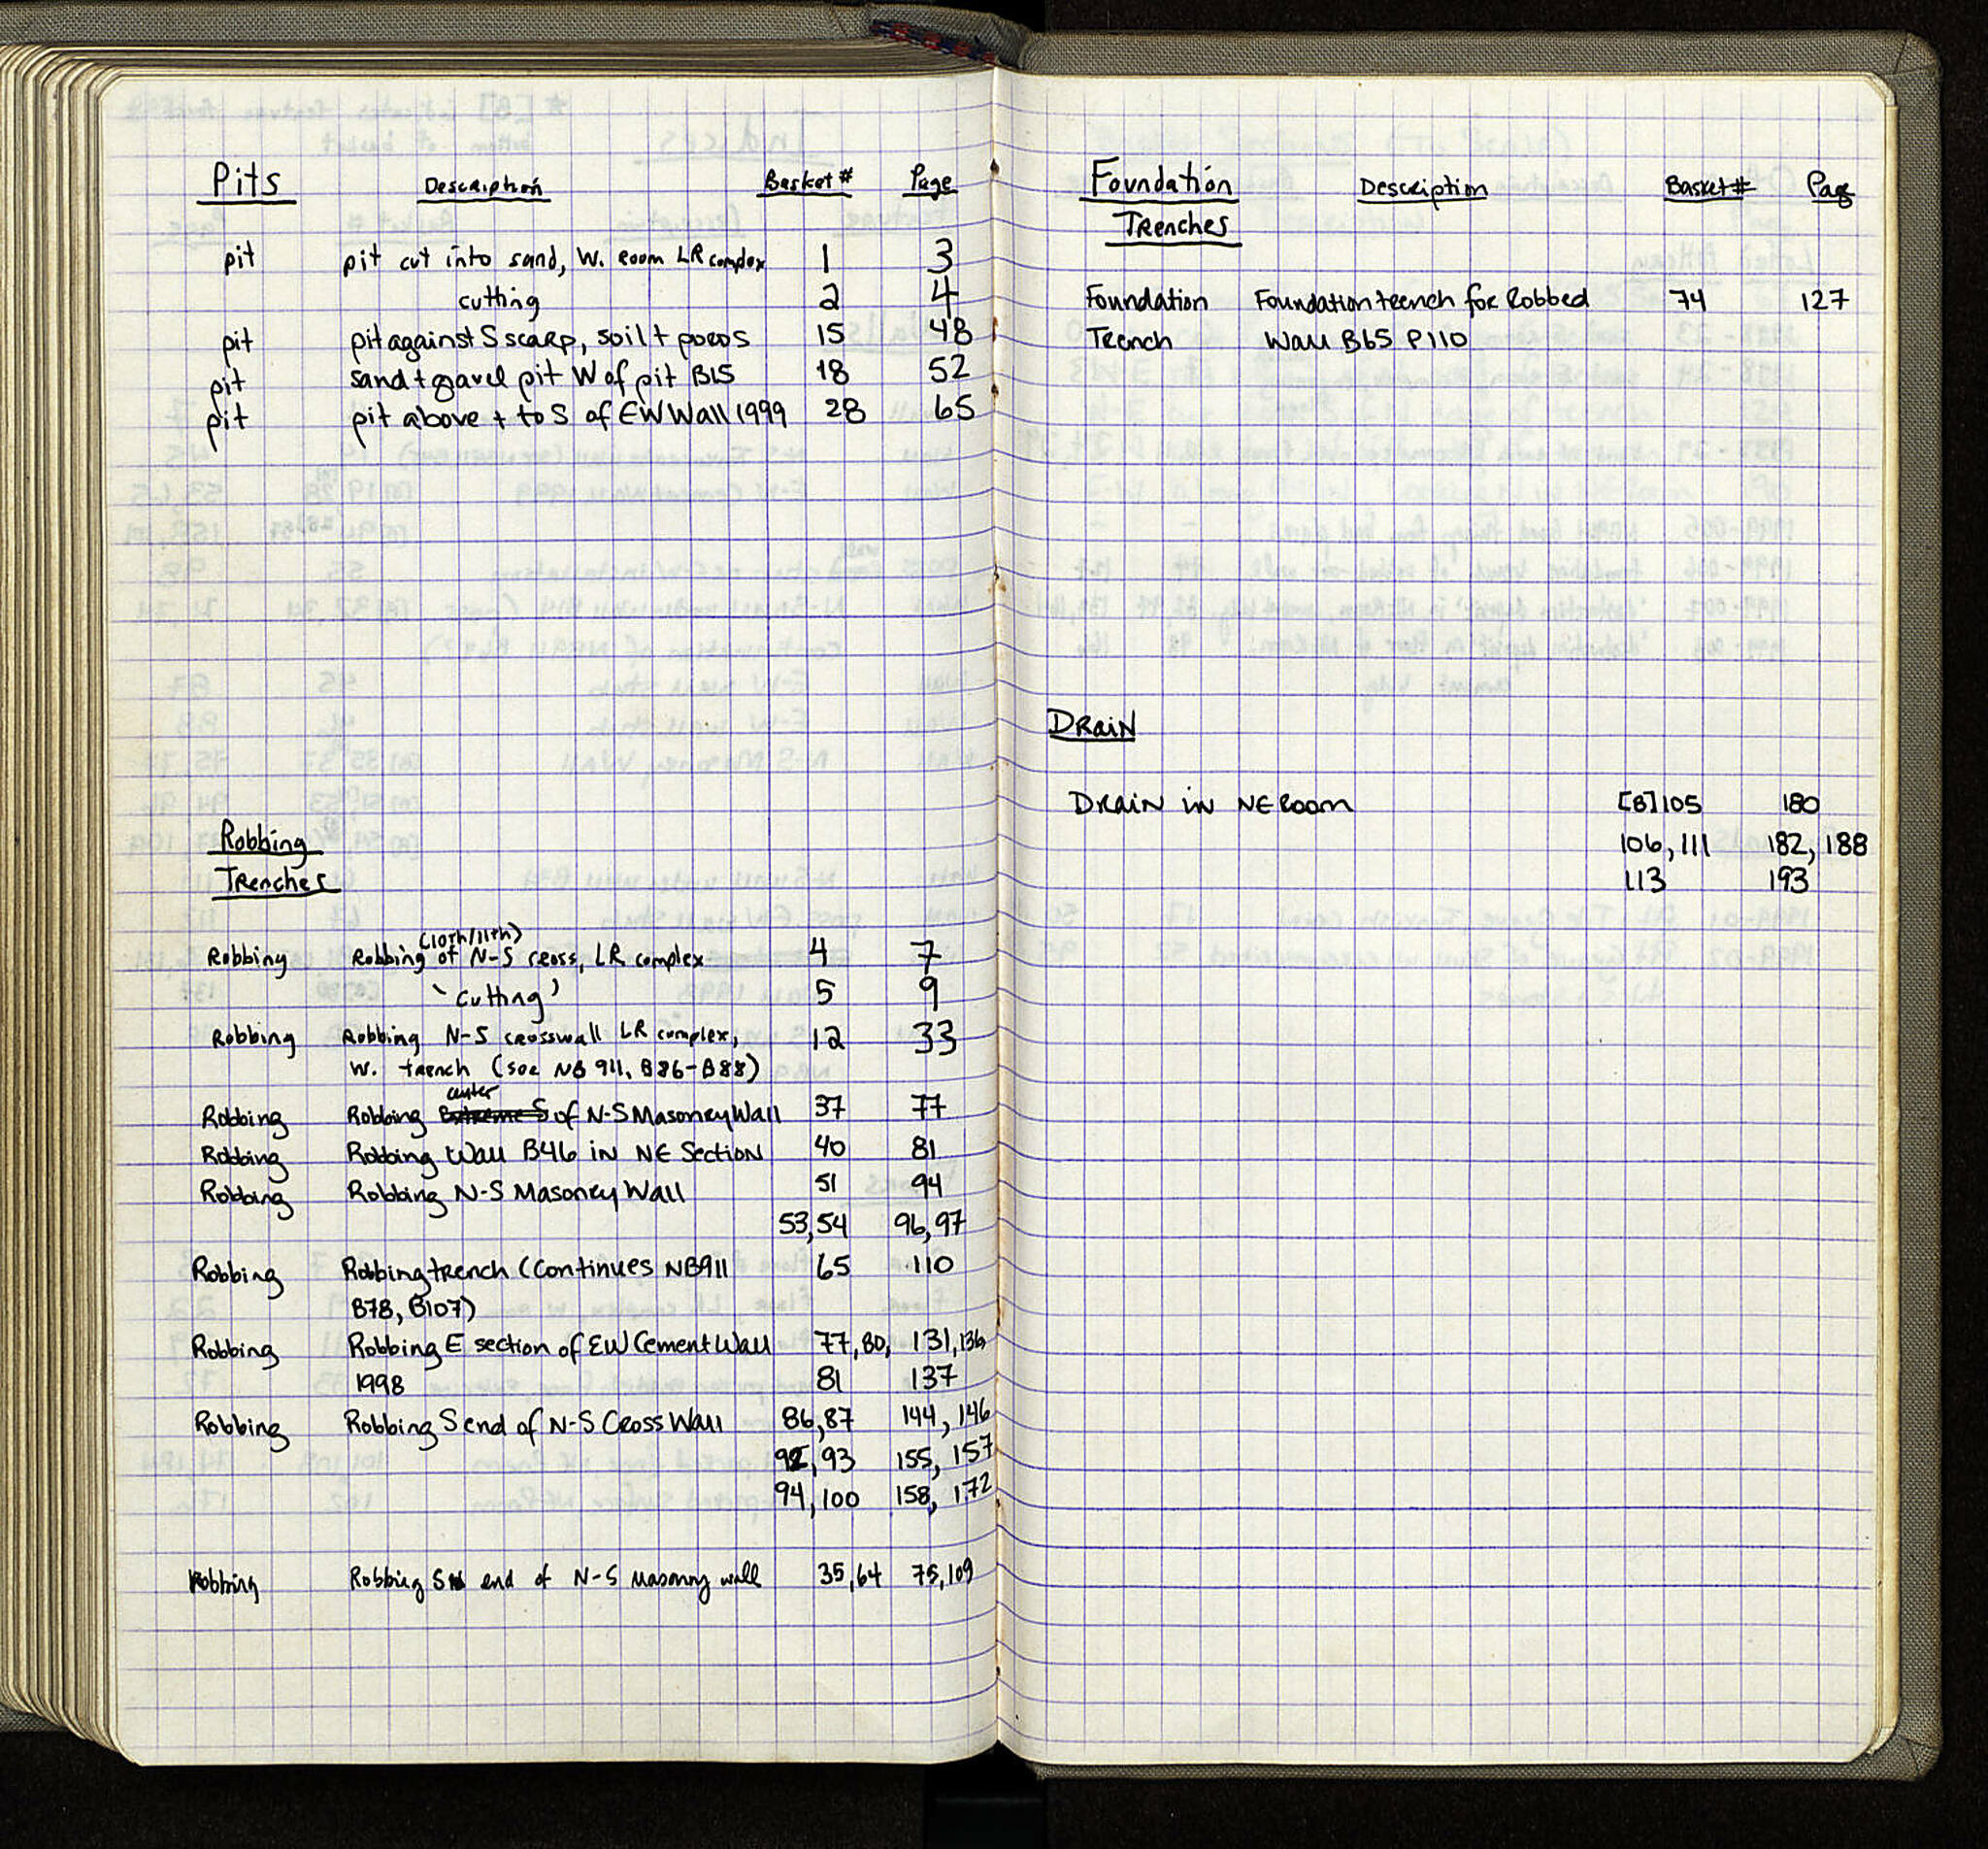 Pits Description Basket # Page
pit pit cut into sand, W. Room LR complex 1 3
cutting 2 4
pit pit against S scarp, soil + poros 15 48
pit sand + gravel pit W of pit B15 18 52
pit pit above + to S of EW Wall 1999 28 65
Robbing
Trenches
(10th/11th)
Robbing Robbing of N-S cross, LR complex 4 7
'cutting' 5 9
Robbing Robbing N-S crosswall LR complex, 12 33
W. trench (see NB 911, B86-B88)
center
Robbing Robbing Extreme S of N-S Masonry Wall 37 77
Robbing Robbing Wall B46 in NE Section 40 81
Robbing Robbing N-S Masonry Wall 51 94
53,54 96,97
Robbing Robbing trench (continues NB911 65 110
B78, B107)
Robbing Robbing E section of EW Cement Wall 77,80, 131,136
1998 81 137
Robbing Robbing S end of N-S Cross Wall 86,87 144, 146
92, 93 155, 157
94, 100 158, 172
Robbing Robbing S end of N-S masonry wall 35,64 75,109
Foundation Description Basket # Pag
Trenches
Foundation Foundation trench for Robbed 74 127
Trench Wall B65 P110
Drain
Drain in NE Room [B]105 180
106, 111 182, 188
113 193